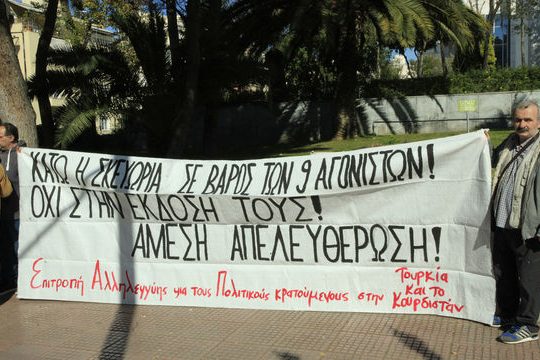 ΚΑΤΩ Η ΣΚΕΥΩΡΙΑ ΣΕ ΒΑΡΟΣ ΤΩΝ 9 ΑΓΩΝΙΣΤΩΝ!
ΟΧΙ ΣΤΗΝ ΕΚΔΟΣΗ ΤΟΥΣ!
ΑΜΕΣΗ ΑΠΕΛΕΥΘΕΡΩΣΗ!
Επιτροπή Αλληλεγγύης για τους Πολιτικούς κρατούμενους στην Τουρκία
και το
Κουρδιστάν